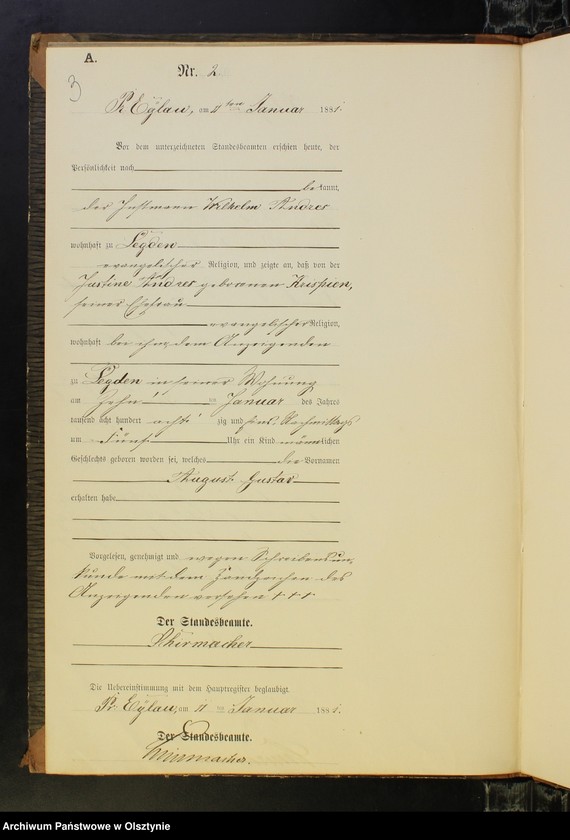 A.
3
Nr. 2
Pr. Eylau, am 11 ten Januar 1881.
Vor dem unterzeichneten Standesbeamten erschien heute, der
Persönlichkeit nach
bekannt,
der Instmann Wilhelm Andres
wohnhaft zu Legden
evangelischer Religion, und zeigte an, daß von der
Justine Andres geborenen Krispien,
seiner Ehefrau
evangelischer Religion,
wohnhaft bei ihm, dem Anzeigenden
zu Legden in seiner Wohnung
am Zehn ten Januar des Jahres
tausend acht hundert acht zig und eins, Nachmittags
um fünf Uhr ein Kind männlichen
Geschlechts geboren worden sei, welches die Vornamen
August Gustav
erhalten habe
Vorgelesen, genehmigt und wegen Schreibensun-
kunde mit dem Handzeichen des
Anzeigenden versehen + + +
Der Standesbeamte.
Schirmacher
Die Uebereinstimmung mit dem Hauptregister beglaubigt.
Pr. Eylau, am 11 ten Januar 1881.
Der Standesbeamte.
Schirmacher.
Archiwum Państwowe w Olsztynie